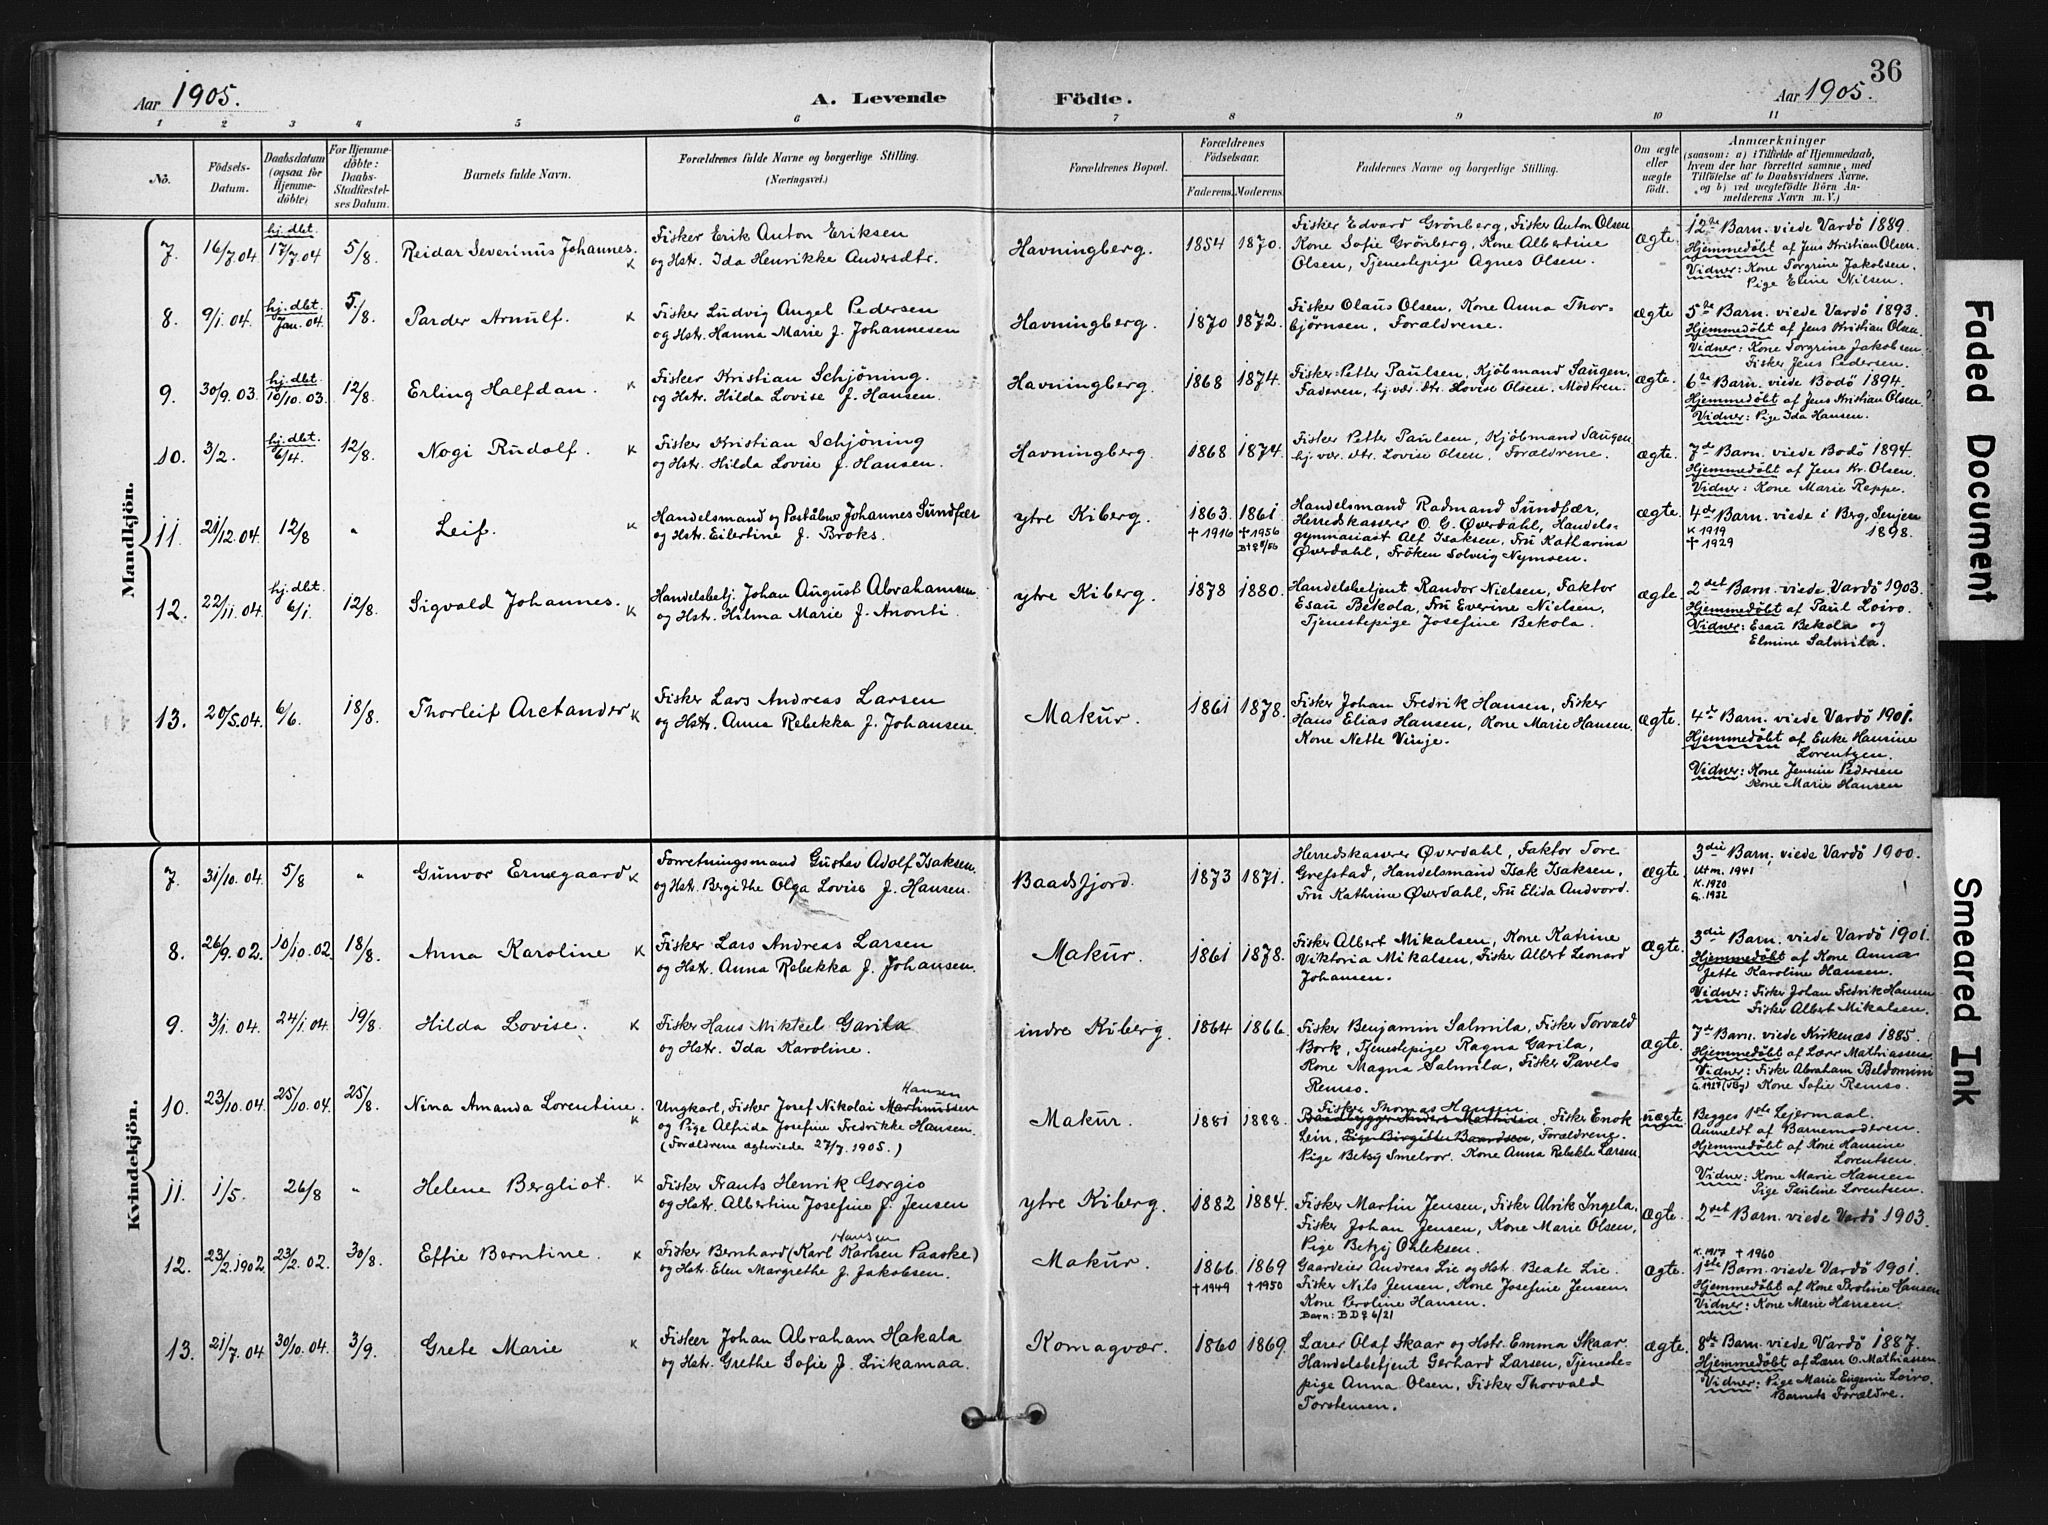 36
Aar 1905.
A. Levende Födte.
Aar 1905.
1 2 3 4 5 6 7 8 9 10 11
No.
Födsels-
Datum.
Daabsdatum
(ogsaa for
Hjemme-
döbte)
For Hjemme-
döbte:
Daabs-
Stadfæstel-
ses Datum.
Barnets fulde Navn.
Forældrenes fulde Navne og borgerlige Stilling.
(Næringsvei.)
Forældrenes Bopæl.
Forældrenes
Födselsaar.
Faderens. Moderens.
Faddernes Navne og borgerlige Stilling.
Om ægte
eller
uægte
født.
Anmærkninger
(saasom: a) i Tilfælde af Hjemmedaab,
hvem der har forrettet samme, med
Tilföielse af to Daabsvidners Navne,
og b) ved uægtefödte Börn An-
melderens Navn m. V.)
Mandkjön.
7. 16/7.04 hj.dbt. 17/7.04 5/8 Reidar Severinus Johannes. K
Fisker Erik Anton Eriksen
og Hstr. Ida Henrikke Andersdtr.
Havningberg. 1854 1870.
Fisker Edvard Grönberg, Fisker Anton Olsen
Kone Sofie Grönberg, Kone Albertine
Olsen, Tjenestepige Agnes Olsen.
ægte.
12te Barn. viede Vardö 1889.
Hjemmedöbt af Jens Kristian Olsen.
Vidner: Kone Torgrine Jakobsen.
Pige Eline Nilsen.
8. 9/1.04 hj.dbt. Jan.04. 5/8. Parder Arnulf. K
Fisker Ludvig Angel Pedersen
og Hstr. Hanna Marie f. Johannesen
Havningberg. 1870 1872.
Fisker Olaus Olsen, Kone Anna Thor-
björnsen, Forældrene.
ægte
5te Barn. viede Vardö 1893.
Hjemmedöbt af Jens Kristian Olsen
Vidner: Kone Torgrine Jakobsen
Fisker Jens Pedersen.
9. 30/9.03 hj.dbt. 10/10.03. 12/8 Erling Halfdan. K
Fisker Kristian Schjöning.
og Hstr. Hilda Lovise f. Hansen.
Havningberg. 1868 1874.
Fisker Petter Paulsen, Kjöbmand Saugen,
Faderen, hj.vær. dtr. Lovise Olsen. Modren.
ægte.
6te Barn. viede Bodö 1894.
Hjemmedöbt af Jens Kristian Olsen.
Vidner: Pige Ida Hansen.
10. 3/2. hj.dbt. 6/4. 12/8. Nogi Rudolf. K
Fisker Kristian Schjöning
og Hstr. Hilda Lovise f. Hansen.
Havningberg. 1868 1874.
Fisker Petter Paulsen, Kjöbmand Saugen
hj.vær. dtr. Lovise Olsen, Forældrene.
ægte.
7de Barn. viede Bodö 1894.
Hjemmedöbt af Jens Kr. Olsen.
Vidner: Kone Marie Reppe.
11. 21/12.04. 12/8 " Leif. K
Handelsmand og Poståbner Johannes Sundfær
og Hstr. Eilertine f. Broks.
ytre Kiberg. 1863. 1861
† 1916 † 1956
Handelsmand Radmand Sundfær,
Herredskasserer O. G. Överdahl, Handels-
gymnasiast Alf Isaksen, Fru Katharina
Överdahl, Fröken Solveig Nymoen.
ægte.
4de Barn. viede i Berg, Senjen
1898.
K 1919
† 1929
12. 22/11.04. hj.dbt. 6/1. 12/8. Sigvald Johannes. K
Handelsbetj. Johan August Abrahamsen
og Hstr. Hilma Marie f. Anonti.
ytre Kiberg. 1878 1880.
Handelsbetjent Randor Nielsen, Faktor
Esau Bekola, Fru Everine Nielsen,
Tjenestepige Josefine Bekola.
ægte.
2det Barn. viede Vardö 1903.
Hjemmedöbt af Paul Loiro.
Vidner: Esau Bekola og
Elmine Salmila.
13. 20/5.04. 6/6. 18/8. Thorleif Arctander. K
Fisker Lars Andreas Larsen
og Hstr. Anna Rebekka f. Johansen.
Makur. 1861 1878.
Fisker Johan Fredrik Hansen, Fisker
Hans Elias Hansen, Kone Marie Hansen.
Kone Nette Vinje.
ægte.
4de Barn. viede Vardö 1901.
Hjemmedöbt af Enke Hansine
Lorentzen.
Vidner: Kone Jensine Pedersen
Kone Marie Hansen
Kvindekjön.
7. 31/10.04. 5/8 " Gunvor Ernegaard K
Forretningsmand Gustav Adolf Isaksen
og Hstr. Bergithe Olga Lovise f. Hansen.
Baadsfjord. 1873 1871.
Herredskasserer Överdahl, Faktor Tore
Grefstad, Handelsmand Isak Isaksen,
Fru Kathrine Överdahl, Fru Elida Andvord.
ægte.
3die Barn. viede Vardö 1900.
Utm. 1941
K. 1920
G. 1932
8. 26/9.02. 10/10.02. 18/8. Anna Karoline K
Fisker Lars Andreas Larsen
og Hstr. Anna Rebekka f. Johansen.
Makur. 1861 1878.
Fisker Albert Mikalsen, Kone Katrine
Viktoria Mikalsen, Fisker Albert Leonard
Johansen.
Ægte.
3die Barn. viede Vardö 1901.
Hjemmedöbt af Kone Anna
Jette Karoline Hansen.
Vidner: Fisker Johan Fredrik Hansen
Fisker Albert Mikalsen.
9. 3/1.04. 24/1.04. 19/8. Hilda Lovise. K
Fisker Hans Mikkel Garila
og Hstr. Ida Karoline.
indre Kiberg. 1864 1866.
Fisker Benjamin Salmila, Fisker Torvald
Bork, Tjenestepige Ragna Garila,
Kone Magna Salmila, Fisker Pavels
Remso.
ægte.
7de Barn. viede Kirkenæs 1885.
Hjemmedöbt af Lærer Mathiassen.
Vidner: Fisker Abraham Beldomini
Kone Sofie Remso.
10. 23/10.04. 25/10.04. 25/8. Nina Amanda Lorentine. K
Hansen
Ungkarl, Fisker Josef Nikolai Martinussen
og Pige Alfrida Josefine Fredrikke Hansen.
(Forældrene ægteviede 27/7 1905.)
Makur. 1881 1888.
Fisker Thomas Hansen
Baadbygger Anders Mathisen Fisker Enok
Lein, Pige Birgitte Baardsen, Forældrene.
Pige Betsy Smelror. Kone Anna Rebekka Larsen.
uægte.
Begges 1ste Lejermaal.
Anmeldt af Barnemoderen.
Hjemmedöbt af Kone Hansine
Lorentsen.
Vidner: Kone Marie Hansen
Pige Pauline Lorentsen.
11. 1/5. 26/8 " Helene Bergliot. K
Fisker Frants Henrik Gorgio
og Hstr. Albertine Josefine f. Jensen
ytre Kiberg. 1882 1884.
Fisker Martin Jensen, Fisker Alrik Ingela,
Fisker Johan Jensen, Kone Marie Olsen,
Pige Betzy Ohleksen.
ægte.
2det Barn. viede Vardö 1903.
12. 23/2.1902. 23/2.02. 30/8. Effie Berntine. K
Hansen
Fisker Bernhard (Karl Karlsen Paaske)
og Hstr. Elen Margrethe f. Jakobsen.
Makur. 1866 1869
† 1949 † 1950
Gaardeier Andreas Lie og Hstr. Beate Lie.
Fisker Nils Jensen, Kone Josefine Jensen.
Kone Peroline Hansen.
Barn: BD♀6/21
ægte.
K. 1917 † 1960
1ste Barn. viede Vardö 1901.
Hjemmedöbt af Kone Peroline Hansen
Vidner: Kone Marie Hansen.
13. 21/7.04 30/10.04. 3/9. Grete Marie K
Fisker Johan Abraham Hakala
og Hstr. Grethe Sofie f. Liikamaa.
Komagvær. 1860 1869.
Lærer Olaf Skaar og Hstr. Emma Skaar.
Handelsbetjent Gerhard Larsen, Tjeneste-
pige Anna Olsen, Fisker Thorvald
Torstensen.
ægte.
8de Barn. viede Vardö 1887.
Hjemmedöbt af Lærer O. Mathiassen.
Vidner: Pige Marie Eugenie Loiro.
Barnets Forældre.
Faded Document
Smeared Ink